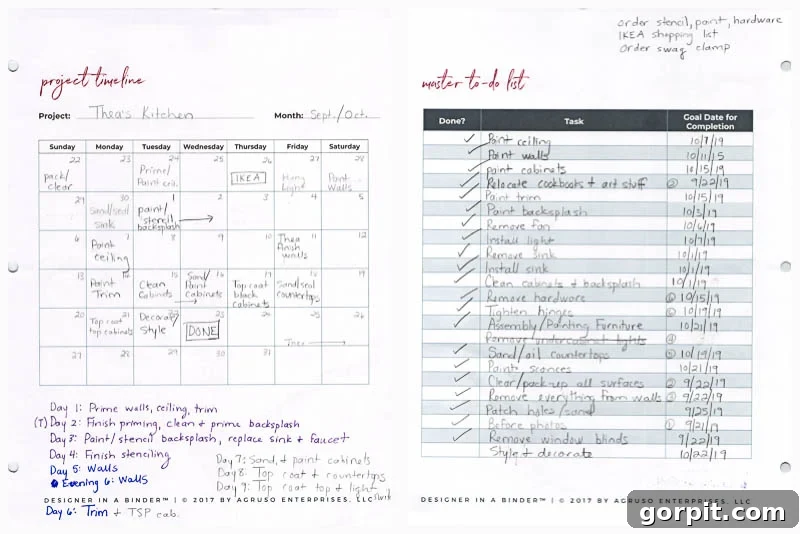 project timeline
Project: Thea's Kitchen Month: Sept./Oct.
Sunday Monday Tuesday Wednesday Thursday Friday Saturday
22 23 24 25 26 27 28
pack/clear Prime/Paint IKEA Hang Light Paint Walls
29 30 1 2 3 4 5
Sand/seal sink paint/stencil backsplash
6 7 8 9 10 11 12
Paint ceiling Thea finish walls
13 14 15 16 17 18 19
Paint Trim Clean Cabinets Sand/Paint cabinets Top coat black cabinets Sand/seal countertops
20 21 22 23 24 25 26
Top coat top cabinets Decorate/Style DONE
27 28 29 30 31
Day 1: Prime walls, ceiling, trim
(T) Day 2: Finish priming, clean & prime backsplash
Day 3: Paint/stencil backsplash, replace sink & faucet
Day 4: Finish stenciling
Day 5: Walls
Evening 6: Walls
Day 6: Trim & TSP cab.
Day 7: Sand, & paint cabinets
Day 8: Top coat & countertops
Day 9: Top coat top & light
DESIGNER IN A BINDER™ | © 2017 BY AGRUSO ENTERPRISES, LLC
order stencil, paint, hardware
IKEA shopping list
Order swag clamp
master to-do list
Done? Task Goal Date for Completion
✓ Paint ceiling 10/7/19
✓ Paint walls 10/11/15
✓ paint cabinets 10/15/19
✓ Relocate cookbooks & art stuff ② 9/22/19
✓ Paint trim 10/15/19
✓ Paint backsplash 10/3/19
✓ Remove fan 10/6/19
✓ Install light 10/7/19
✓ Remove sink 10/1/19
✓ Install sink 10/1/19
✓ Clean cabinets & backsplash 10/1/19
✓ Remove hardware 10/15/19
✓ Tighten hinges 10/19/19
✓ Assembly/Painting Furniture 10/21/19
Remove undercabinet lights
✓ Sand/oil countertops 10/19/19
✓ Paint sconces 10/21/19
✓ Clear/pack-up all surfaces ② 9/22/19
✓ Remove everything from walls 9/22/19
✓ Patch holes/sand 9/25/19
✓ Before photos ① 9/21/19
✓ Remove window blinds 9/22/19
Style & decorate 10/22/19
DESIGNER IN A BINDER™ | © 2017 BY AGRUSO ENTERPRISES, LLC
gorpit.com